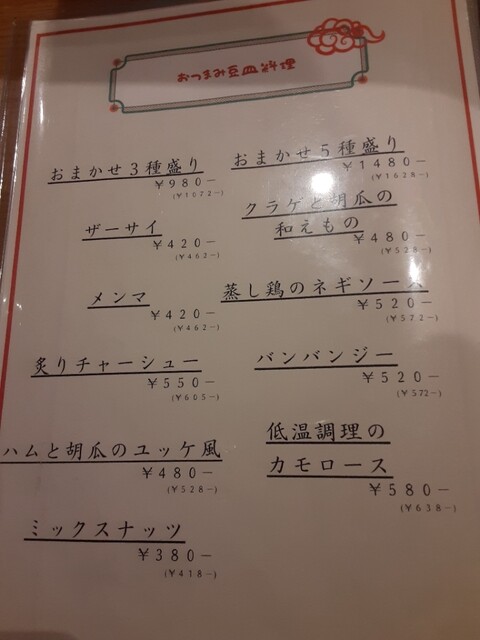 おつまみ豆皿料理
おまかせ3種盛り
¥980-
(¥1072-)
ザーサイ
¥420-
(¥462-)
メンマ
¥420-
(¥462-)
炙りチャーシュー
¥550-
(¥605-)
ハムと胡瓜のユッケ風
¥480-
(¥528-)
ミックスナッツ
¥380-
(¥418-)
おまかせ5種盛り
¥1480-
(¥1628-)
クラゲと胡瓜の
和えもの
¥480-
(¥528-)
蒸し鶏のネギソース
¥520-
(¥572-)
バンバンジー
¥520-
(¥572-)
低温調理の
カモロース
¥580-
(¥638-)